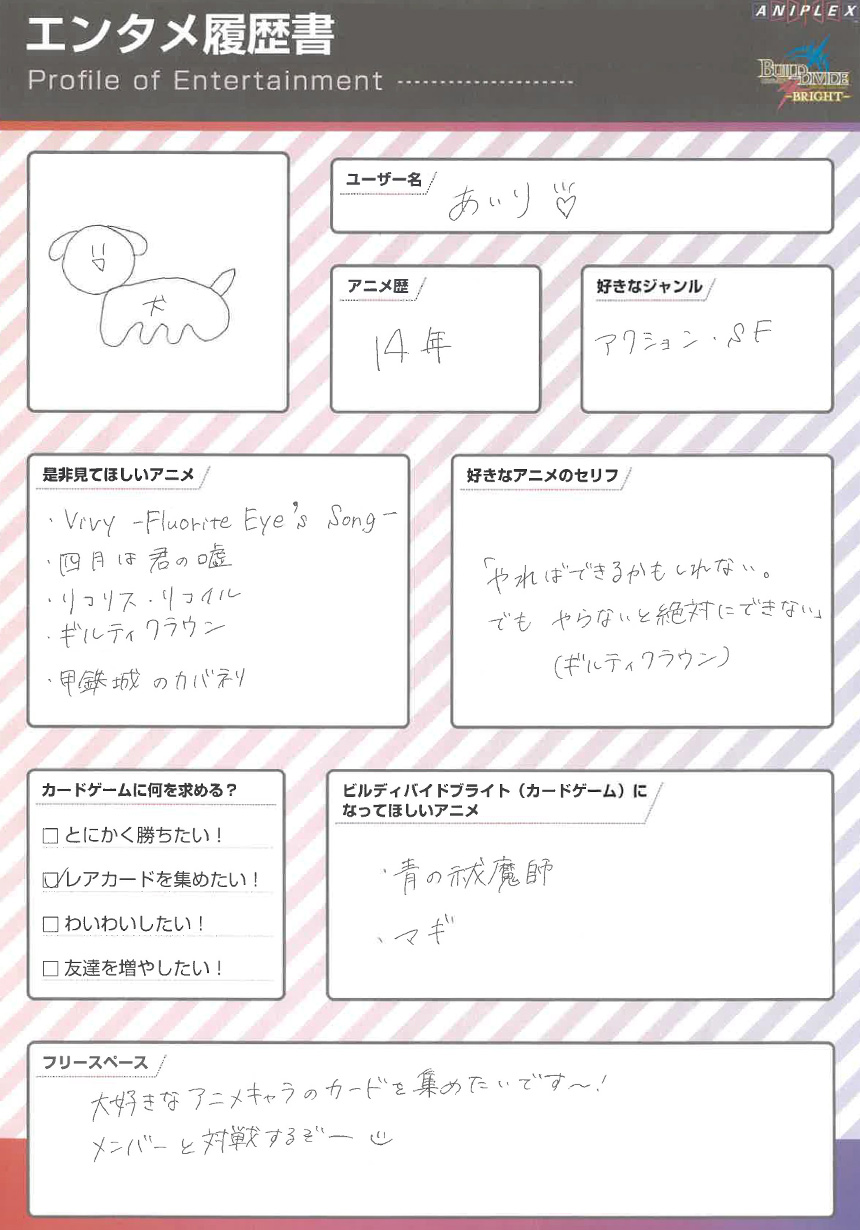 ANIPLEX
エンタメ履歴書
Profile of Entertainment
BUILD DIVIDE
-BRIGHT-
犬
ユーザー名
あいり♡
アニメ歴
14年
好きなジャンル
アクション・SF
是非見てほしいアニメ
・Vivy -Fluorite Eye's Song-
・四月は君の嘘
・リコリス・リコイル
・ギルティクラウン
・甲鉄城のカバネリ
好きなアニメのセリフ
「やればできるかもしれない。
でも やらないと絶対にできない」
(ギルティクラウン)
カードゲームに何を求める?
□とにかく勝ちたい!
☑レアカードを集めたい!
□わいわいしたい!
□友達を増やしたい!
ビルディバイドブライト(カードゲーム)に
なってほしいアニメ
・青の祓魔師
・マギ
フリースペース
大好きなアニメキャラのカードを集めたいです〜!
メンバーと対戦するぞー